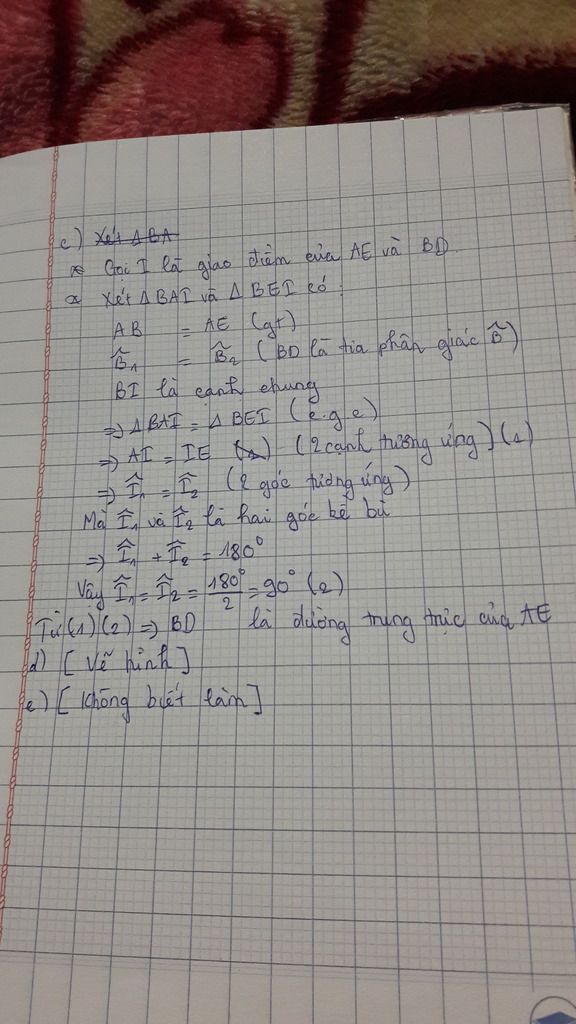 c) Xét Δ BA
* Gọi I là giao điểm của AE và BD
* Xét Δ BAI và Δ BEI có :
AB = AE (gt)
B̂₁ = B̂₂ (BD là tia phân giác B̂)
BI là cạnh chung
=> Δ BAI = Δ BEI (c.g.c)
=> AI = IE (2 cạnh tương ứng) (1)
=> Î₁ = Î₂ (2 góc tương ứng)
Mà Î₁ và Î₂ là hai góc kề bù
=> Î₁ + Î₂ = 180°
Vậy Î₁ = Î₂ = 180°/2 = 90° (2)
Từ (1) (2) => BD là đường trung trực của AE
d) [Vẽ hình]
e) [Không biết làm]